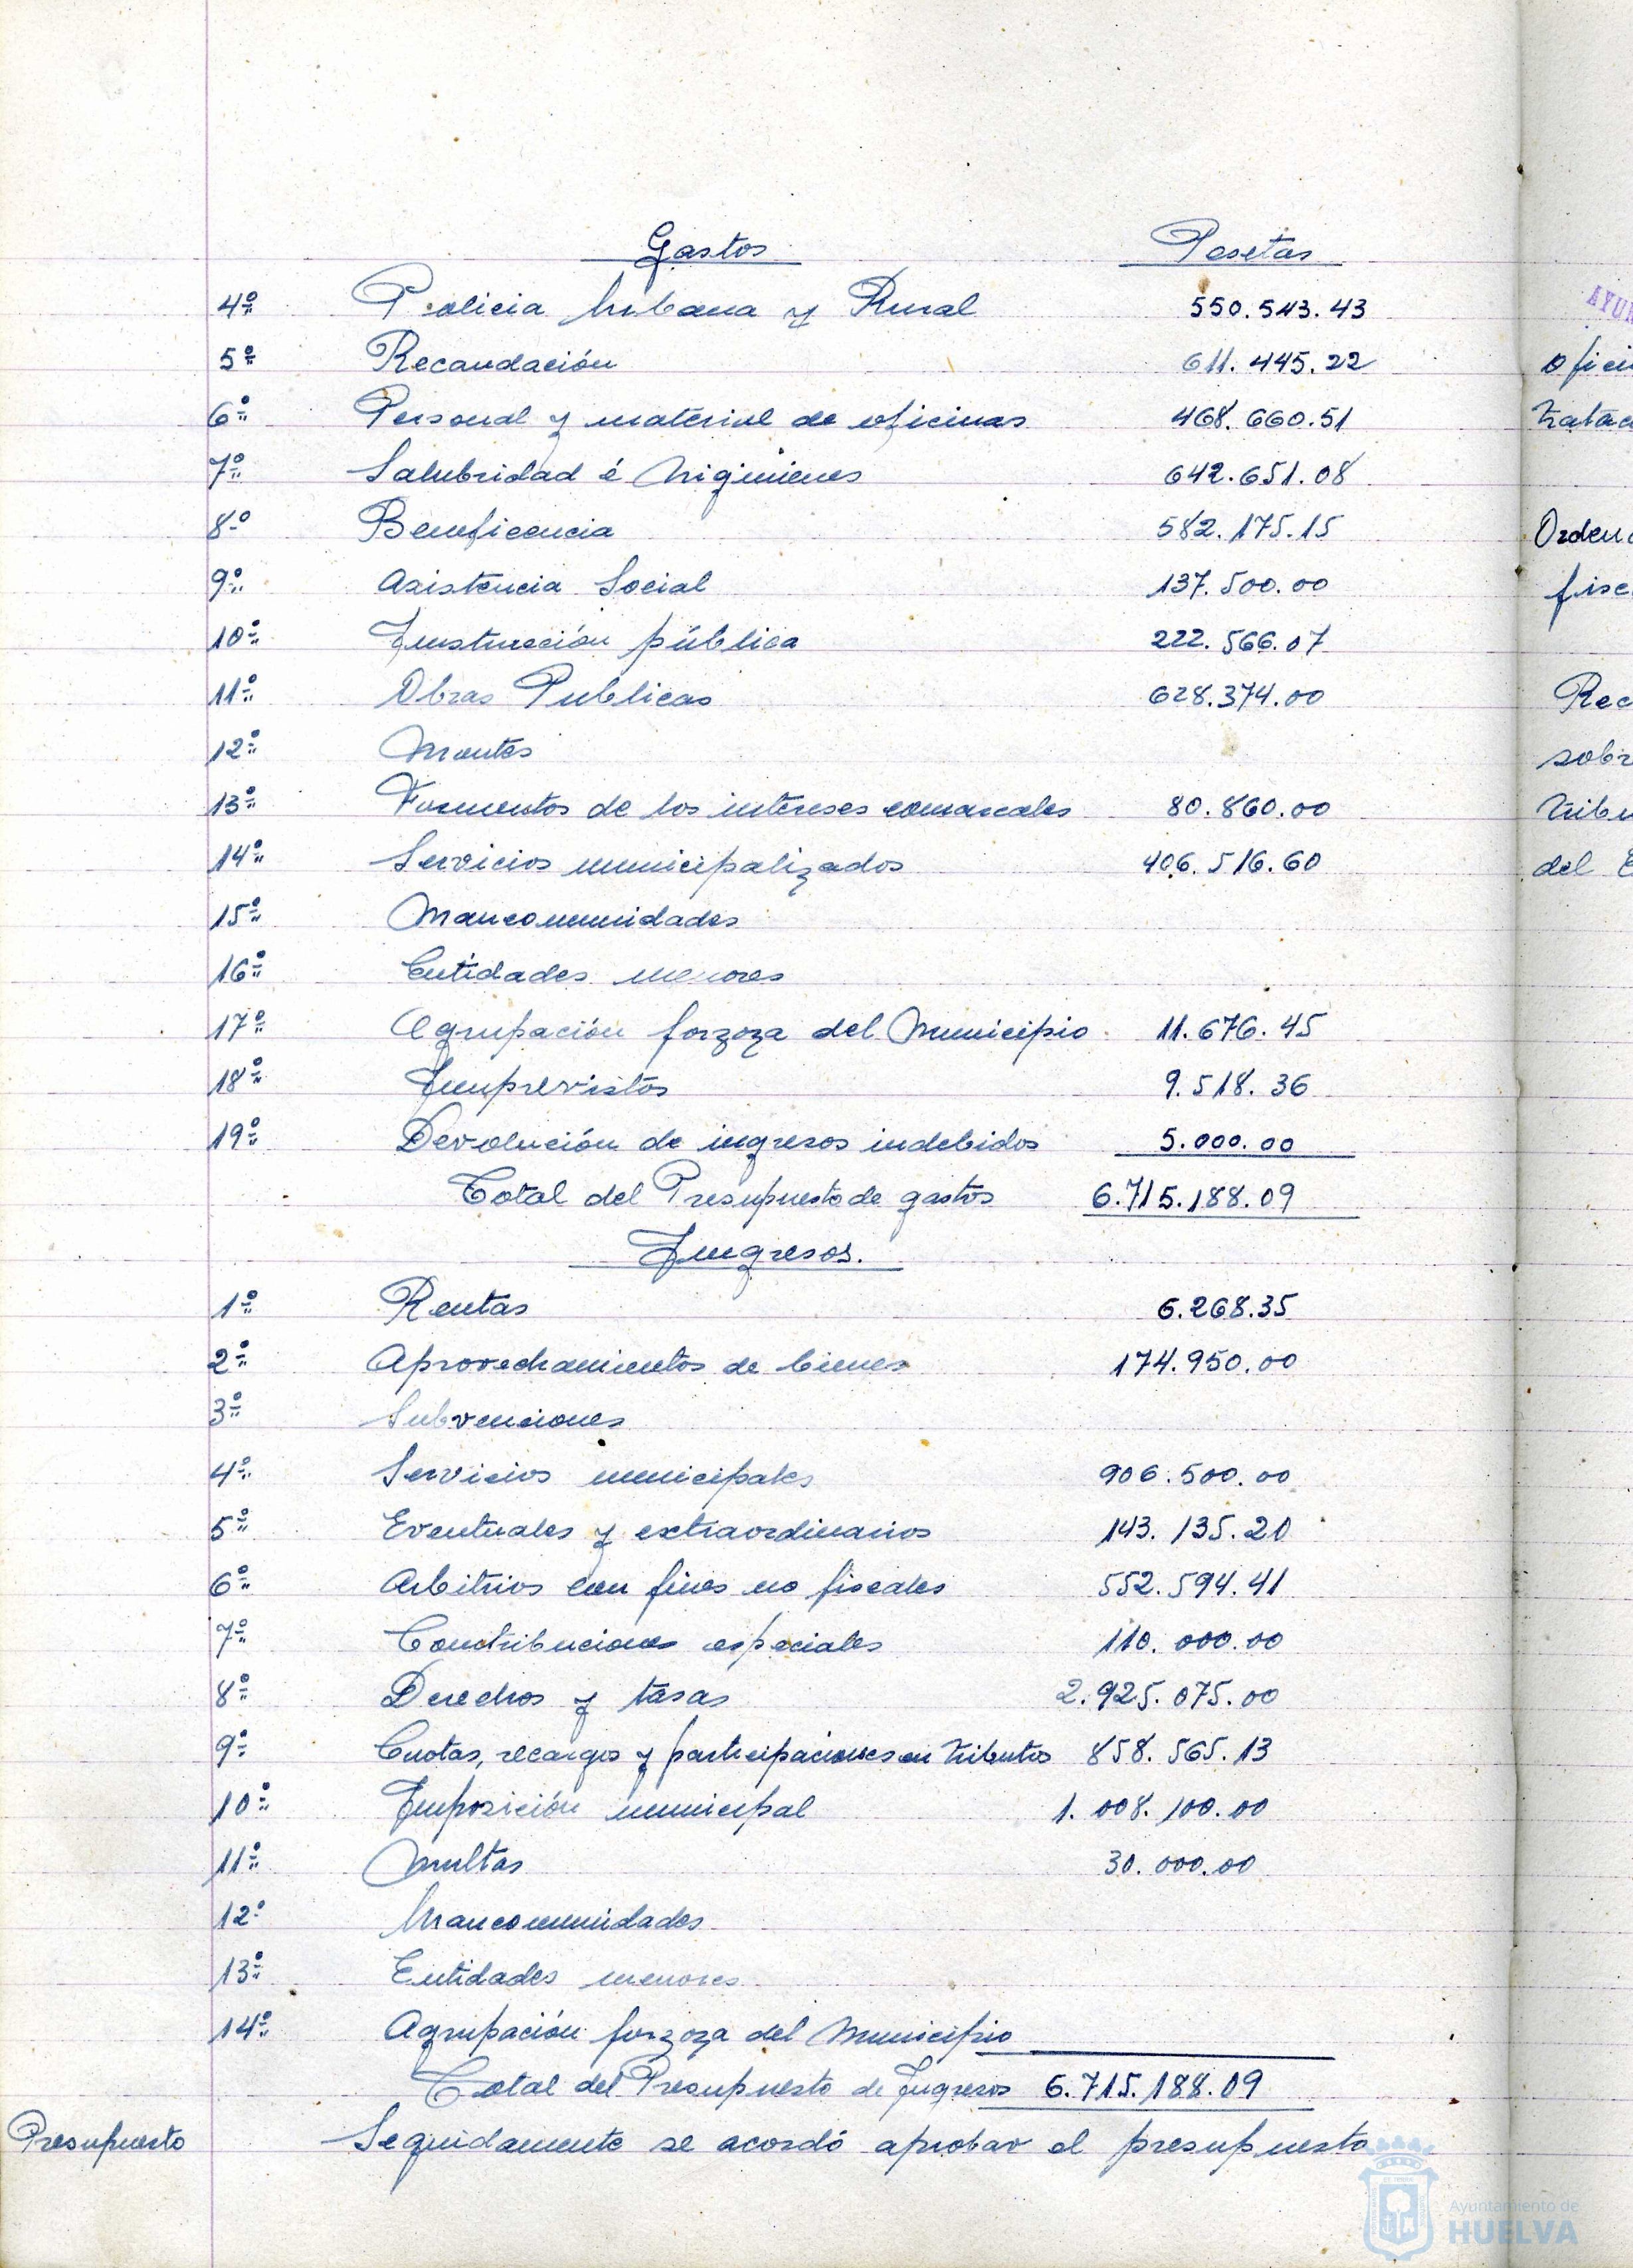 Gastos Pesetas
4º Policia Urbana y Rural 550.543.43
5º Recaudación 611.445.22
6º Personal y material de oficinas 468.660.51
7º Salubridad é higinienes 642.651.08
8º Beneficencia 582.175.15
9º Asistencia Social 137.500.00
10º Instrucción pública 222.566.07
11º Obras Publicas 628.374.00
12º Montes
13º Fomentos de los intereses comarcales 80.860.00
14º Servicios municipalizados 406.516.60
15º Mancomunidades
16º Entidades menores
17º Agrupación forzoza del Municipio 11.676.45
18º Imprevistos 9.518.36
19º Devolución de ingresos indebidos 5.000.00
Total del Presupuesto de gastos 6.715.188.09
Ingresos.
1º Rentas 6.268.35
2º Aprovechamientos de bienes 174.950.00
3º Subvenciones
4º Servicios municipales 906.500.00
5º Eventuales y extraordinarios 143.135.20
6º Arbitrios con fines no fiscales 552.594.41
7º Contribuciones especiales 110.000.00
8º Derechos y tasas 2.925.075.00
9º Cuotas, recargos y participaciones en tributos 858.565.13
10º Imposición municipal 1.008.100.00
11º Multas 30.000.00
12º Mancomunidades
13º Entidades menores
14º Agrupación forzoza del Municipio
Total del Presupuesto de Ingresos 6.715.188.09
Presupuesto Seguidamente se acordó aprobar el presupuesto
Ayuntamiento de
HUELVA
AYUN
ofici
Ordena
fisc
Rec
sobr
tribu
del E